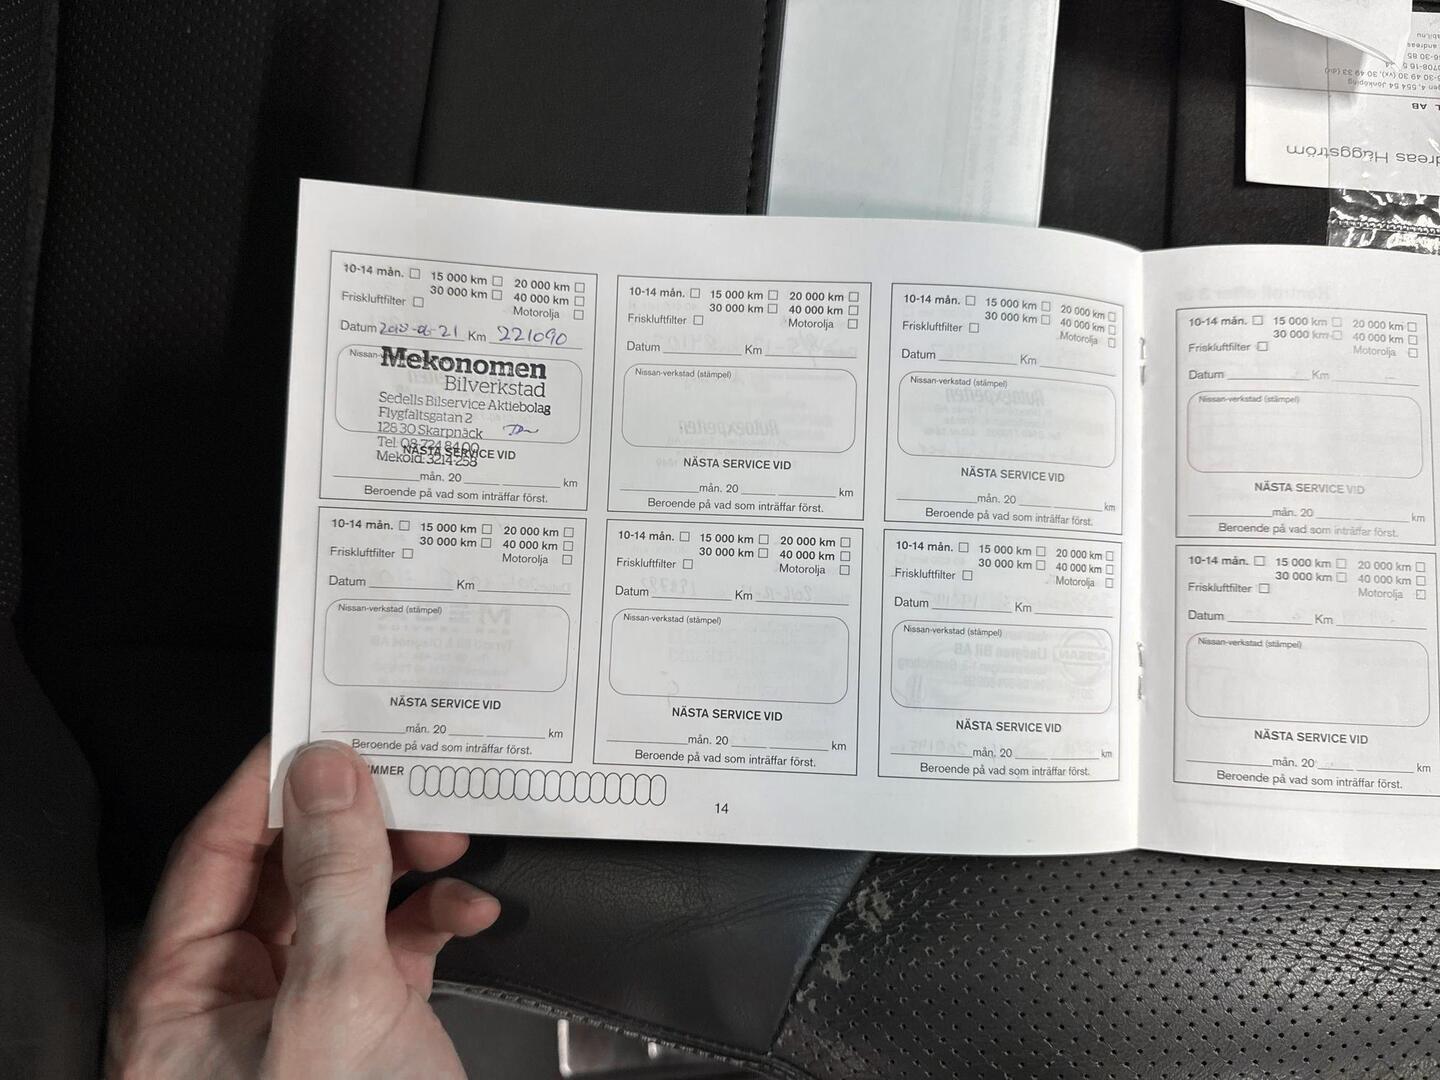 10-14 mån. 15 000 km 20 000 km
30 000 km 40 000 km
Friskluftfilter Motorolja
Datum 2018-06-21 Km 221090
Nissan-
Mekonomen
Bilverkstad
Sedells Bilservice Aktiebolag
Flygfältsgatan 2
128 30 Skarpnäck
Tel: 08-724 84 00
NÄSTA SERVICE VID
MekoId: 3214-258
mån. 20 km
Beroende på vad som inträffar först.
10-14 mån. 15 000 km 20 000 km
30 000 km 40 000 km
Friskluftfilter Motorolja
Datum Km
Nissan-verkstad (stämpel)
NÄSTA SERVICE VID
mån. 20 km
Beroende på vad som inträffar först.
10-14 mån. 15 000 km 20 000 km
30 000 km 40 000 km
Friskluftfilter Motorolja
Datum Km
Nissan-verkstad (stämpel)
NÄSTA SERVICE VID
mån. 20 km
Beroende på vad som inträffar först.
10-14 mån. 15 000 km 20 000 km
30 000 km 40 000 km
Friskluftfilter Motorolja
Datum Km
Nissan-verkstad (stämpel)
NÄSTA SERVICE VID
mån. 20 km
Beroende på vad som inträffar först.
10-14 mån. 15 000 km 20 000 km
30 000 km 40 000 km
Friskluftfilter Motorolja
Datum Km
Nissan-verkstad (stämpel)
NÄSTA SERVICE VID
mån. 20 km
Beroende på vad som inträffar först.
10-14 mån. 15 000 km 20 000 km
30 000 km 40 000 km
Friskluftfilter Motorolja
Datum Km
Nissan-verkstad (stämpel)
NÄSTA SERVICE VID
mån. 20 km
Beroende på vad som inträffar först.
10-14 mån. 15 000 km 20 000 km
30 000 km 40 000 km
Friskluftfilter Motorolja
Datum Km
Nissan-verkstad (stämpel)
NÄSTA SERVICE VID
mån. 20 km
Beroende på vad som inträffar först.
10-14 mån. 15 000 km 20 000 km
30 000 km 40 000 km
Friskluftfilter Motorolja
Datum Km
Nissan-verkstad (stämpel)
NÄSTA SERVICE VID
mån. 20 km
Beroende på vad som inträffar först.
MMER
14
reas Häggström
AB
gen 4, 554 54 Jönköping
30 49 30 (vx), 30 49 33 (dir)
0708-16 5
andreas